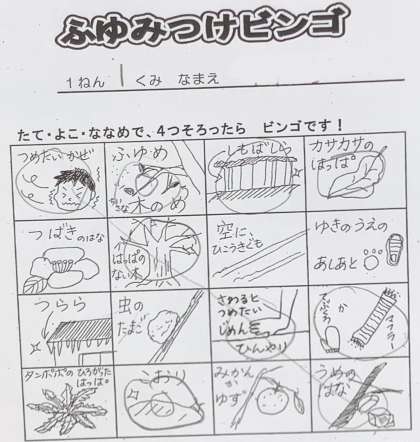 ふゆみつけビンゴ
1ねん 1 くみ なまえ
たて・よこ・ななめで、4つそろったら ビンゴです！
つめたいかぜ
ふゆめ
木のめ
しもばしら
カサカサの
はっぱ
つばきのはな
はっぱの
ない木
空に、
ひこうきぐも
ゆきのうえの
あしあと
つらら
虫の
たまご
さわると
つめたい
じめん
ひんやり
てぶくろ
か
マフラー
タンポポの ひろがった
はっぱ。
こおり
みかん
か
ゆず
うめの
はな